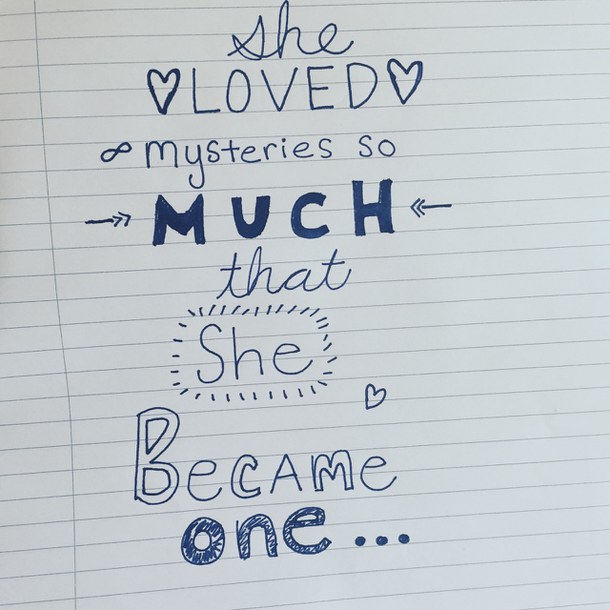 she
LOVED
mysteries so
MUCH
that
She
BeCAMe
one...